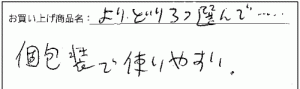 お買い上げ商品名：よりどり3つ選んで……
個包装で使いやすい。